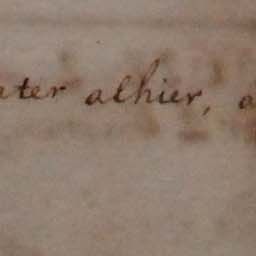 ater alhier, a